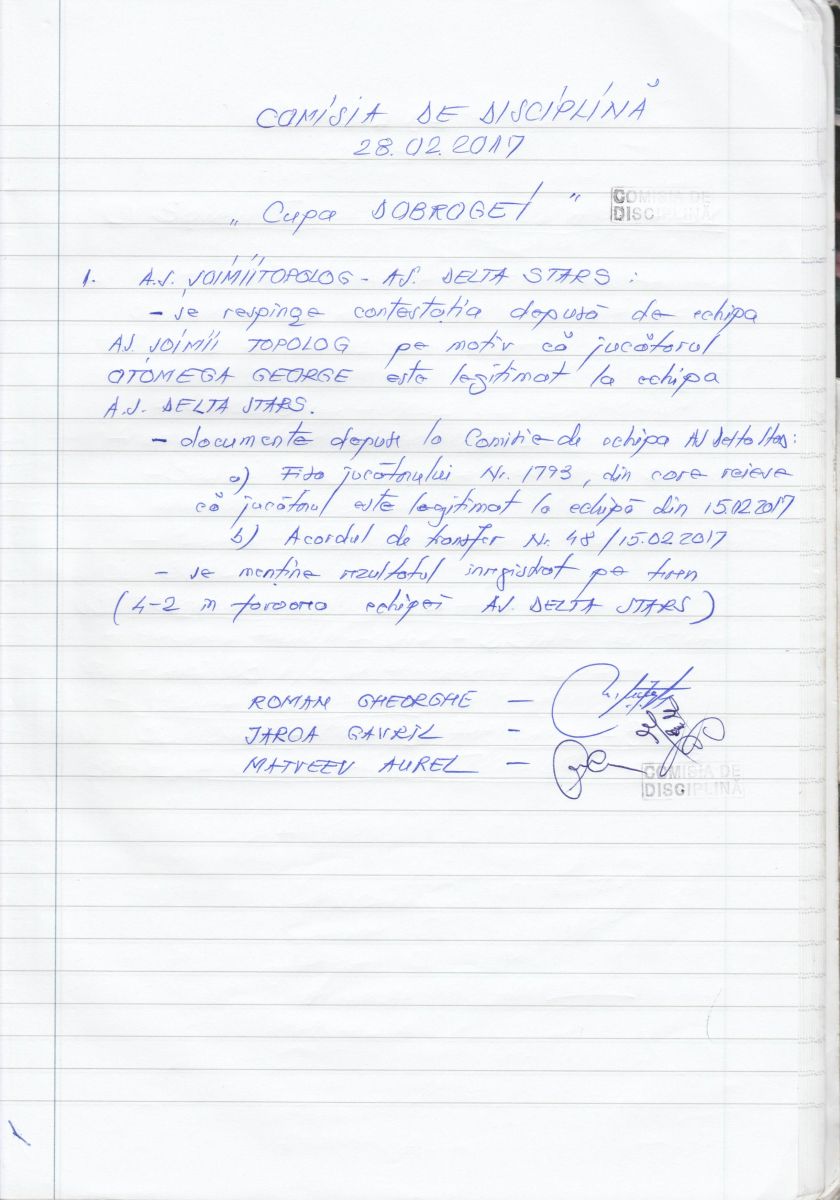 COMISIA DE DISCIPLINĂ
28.02.2017
„ Cupa DOBROGEI ”
COMISIA DE
DISCIPLINĂ
1. A.S. ȘOIMII TOPOLOG - AS. DELTA STARS :
- se respinge contestația depusă de echipa
AS. ȘOIMII TOPOLOG pe motiv că jucătorul
OTOMEGA GEORGE este legitimat la echipa
A.S. DELTA STARS.
- documente depuse la Comisie de echipa AS Delta Stars:
a) Fișa jucătorului Nr. 1793, din care reiese
că jucătorul este legitimat la echipă din 15.02.2017
b) Acordul de transfer Nr. 48/15.02.2017
- se menține rezultatul înregistrat pe teren
(4-2 în favoarea echipei AS. DELTA STARS)
ROMAN GHEORGHE -
JAROA GAVRIL -
MATVEEV AUREL -
COMISIA DE
DISCIPLINĂ